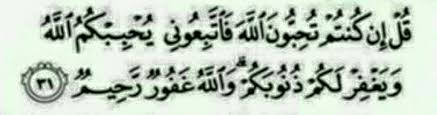 قُلْ إِن كُنتُمْ تُحِبُّونَ ٱللَّهَ فَٱتَّبِعُونِى يُحْبِبْكُمُ ٱللَّهُ
وَيَغْفِرْ لَكُمْ ذُنُوبَكُمْ ۗ وَٱللَّهُ غَفُورٌ رَّحِيمٌ ٣١